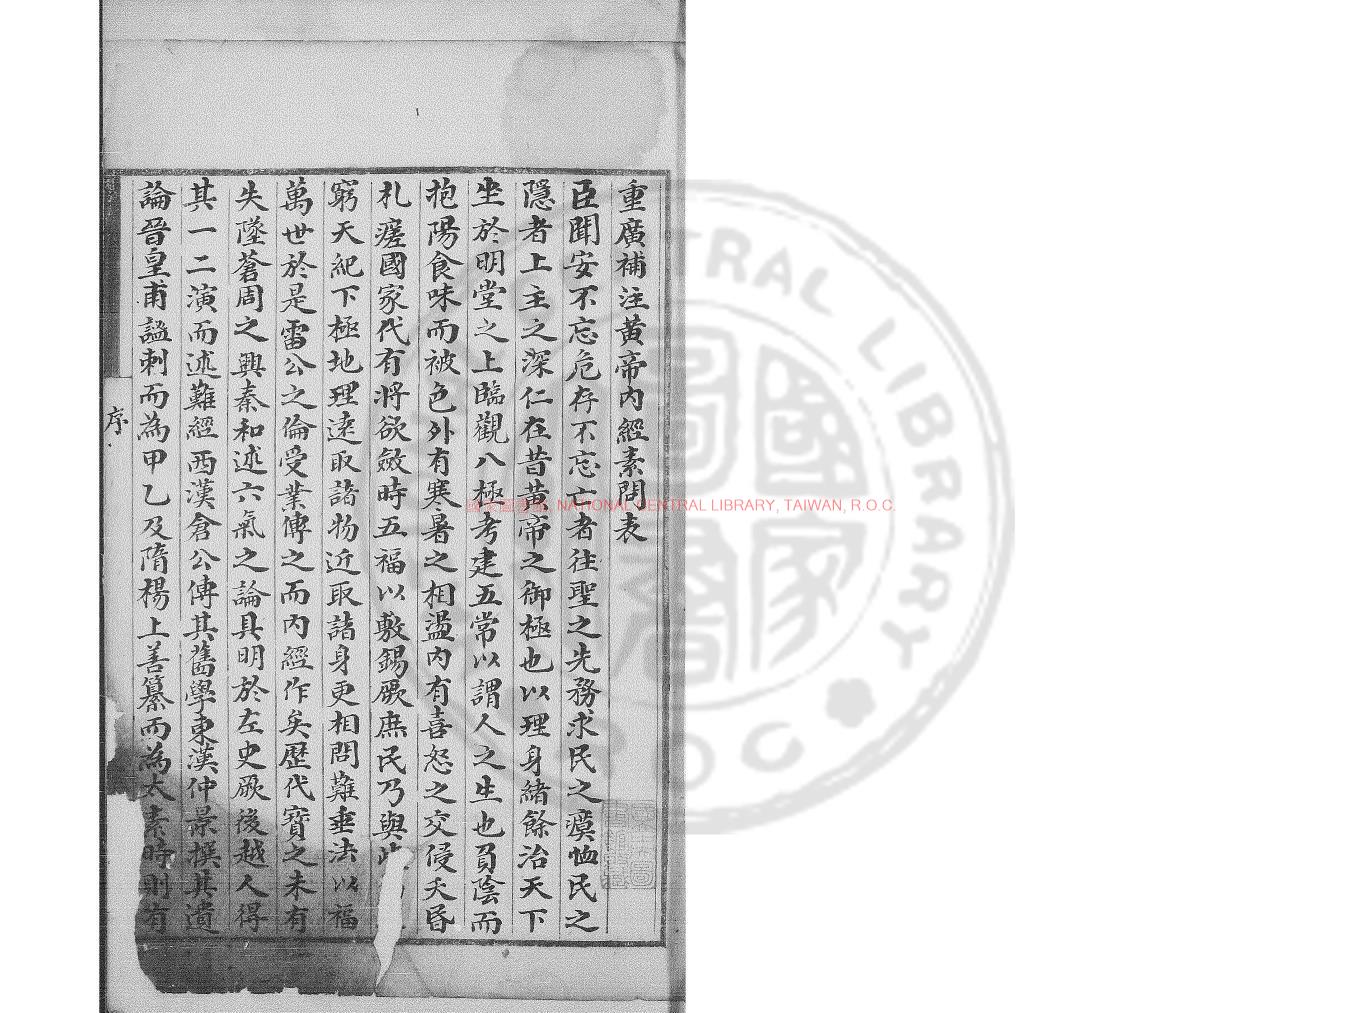 重廣補注黃帝內經素問表
臣聞安不忘危存不忘亡者往聖之先務求民之瘼恤民之
隱者上主之深仁在昔黃帝之御極也以理身緒餘治天下
坐於明堂之上臨觀八極考建五常以謂人之生也負陰而
抱陽食味而被色外有寒暑之相盪內有喜怒之交侵夭昏
札瘥國家代有將欲斂時五福以敷錫厥庶民乃與
窮天紀下極地理遠取諸物近取諸身更相問難垂法以福
萬世於是雷公之倫受業傳之而內經作矣歷代寶之未有
失墜蒼周之興秦和述六氣之論具明於左史厥後越人得
其一二演而述難經西漢倉公傳其舊學東漢仲景撰其遺
論晉皇甫謐刺而為甲乙及隋楊上善纂而為太素時則有
序
NATIONAL CENTRAL LIBRARY, TAIWAN, R.O.C.